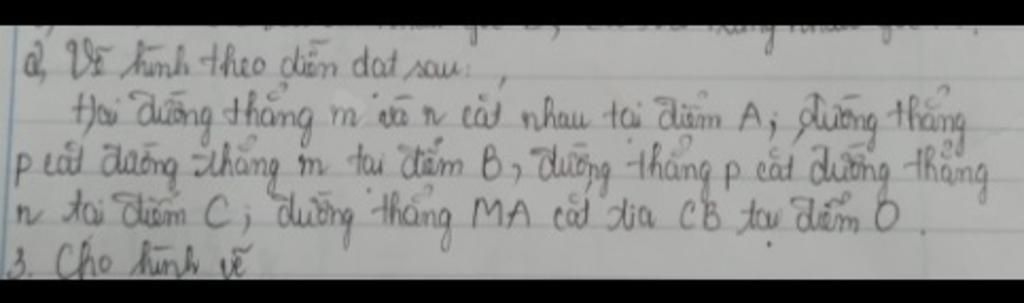 a, Vẽ hình theo diễn đạt sau:
Hai đường thẳng m và n cắt nhau tại điểm A; đường thẳng
p cắt đường thẳng m tại điểm B, đường thẳng p cắt đường thẳng
n tại điểm C; đường thẳng MA cắt tia CB tại điểm O.
3. Cho hình vẽ